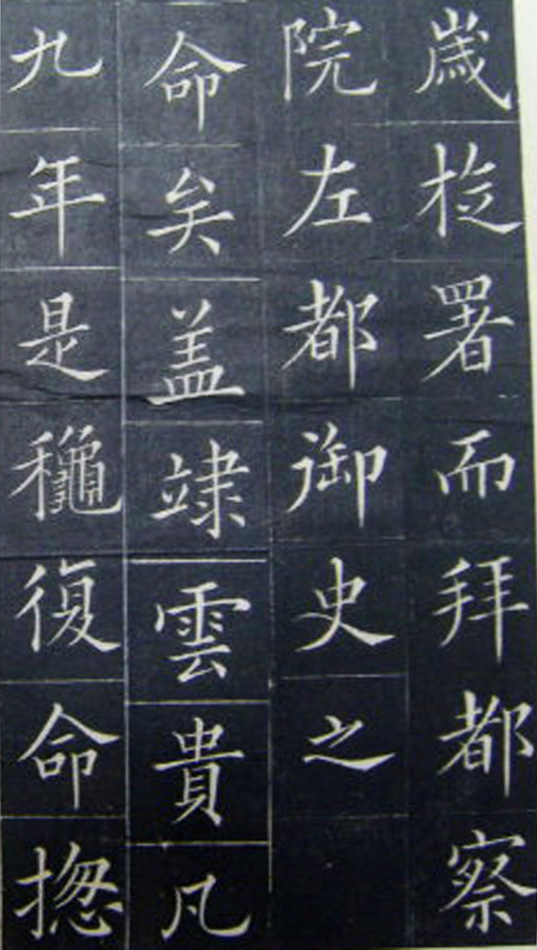 歲挓署而拜都察
院左都御史之
命矣盖隷雲貴凡
九年是龝復命揔